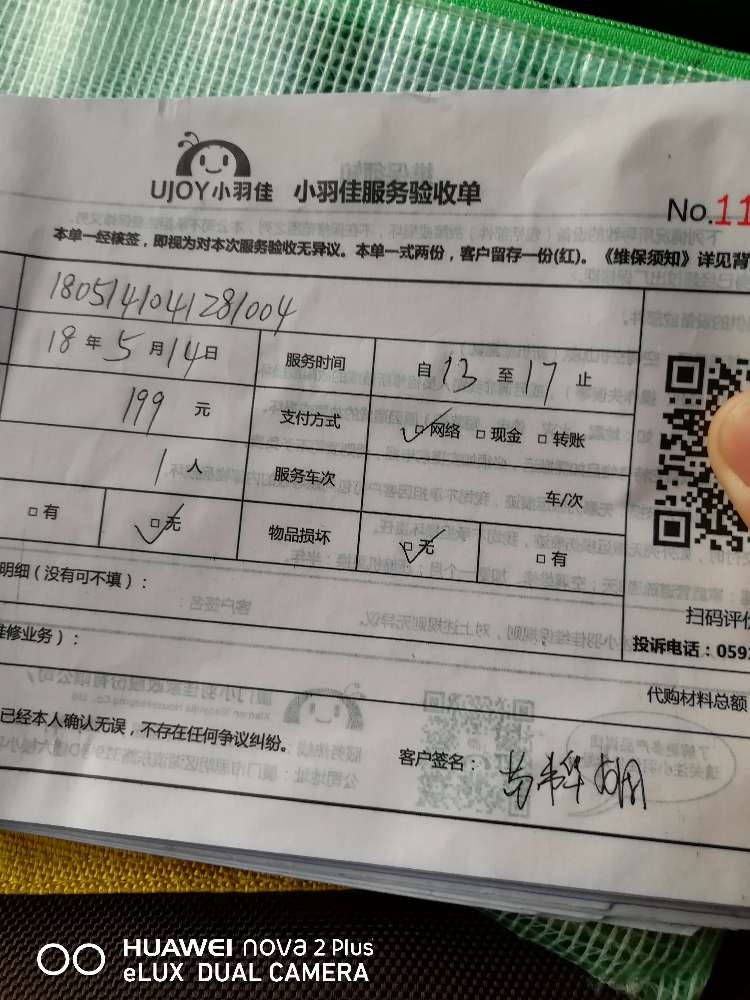 UJOY小羽佳 小羽佳服务验收单
No.11
本单一经核签，即视为对本次服务验收无异议。本单一式两份，客户留存一份(红)。《维保须知》详见背
1805141041281004
18年5月14日 服务时间 自13至17止
199元 支付方式 网络 现金 转账
1人 服务车次 车/次
有 无 物品损坏 无 有
明细（没有可不填）：
扫码评价
维修业务）：
投诉电话：0592
代购材料总额
已经本人确认无误，不存在任何争议纠纷。
客户签名：
HUAWEI nova 2 Plus
eLUX DUAL CAMERA